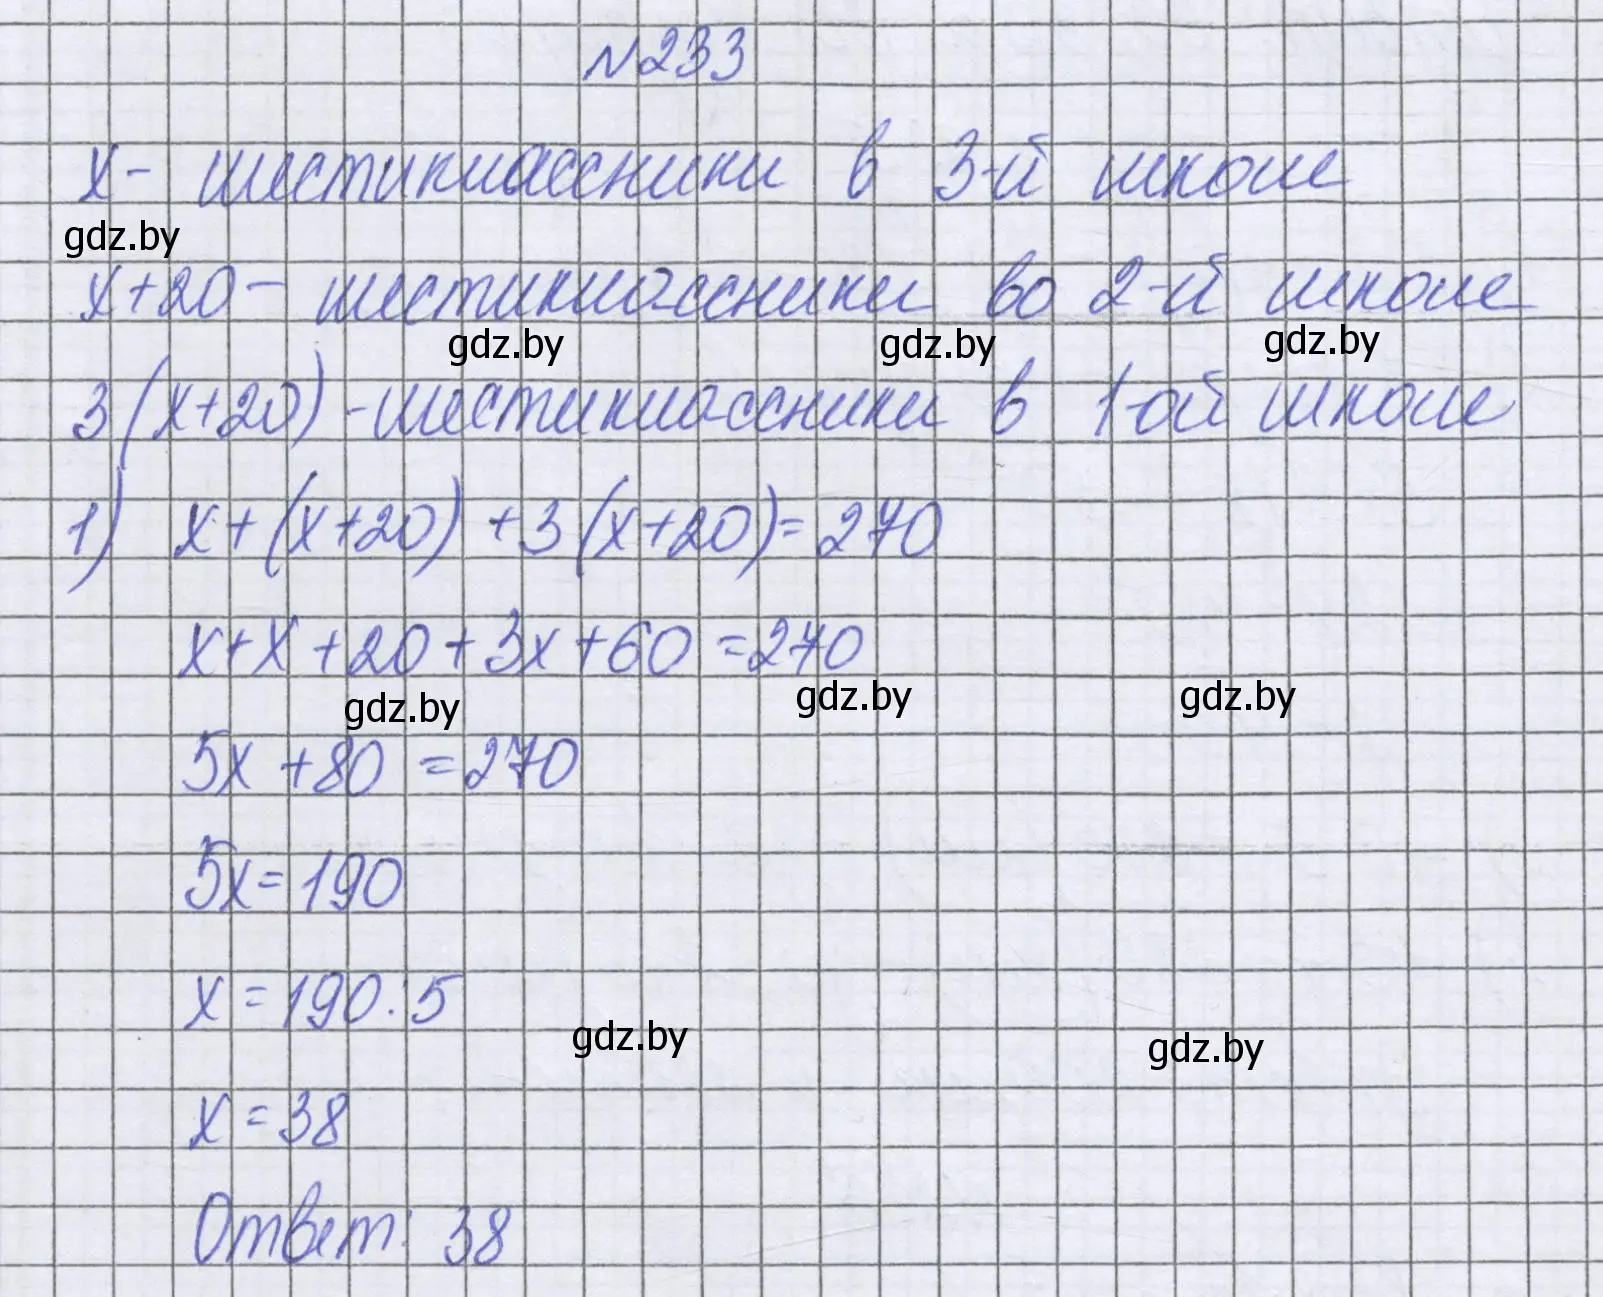 №233
x - шестиклассники в 3-й школе
gdz.by
x+20 - шестиклассники во 2-й школе
gdz.by gdz.by gdz.by
3(x+20) - шестиклассники в 1-ой школе
1) x+(x+20)+3(x+20)=270
x+x+20+3x+60=270
gdz.by gdz.by gdz.by
5x+80=270
5x=190
x=190:5
gdz.by gdz.by
x=38
Ответ: 38